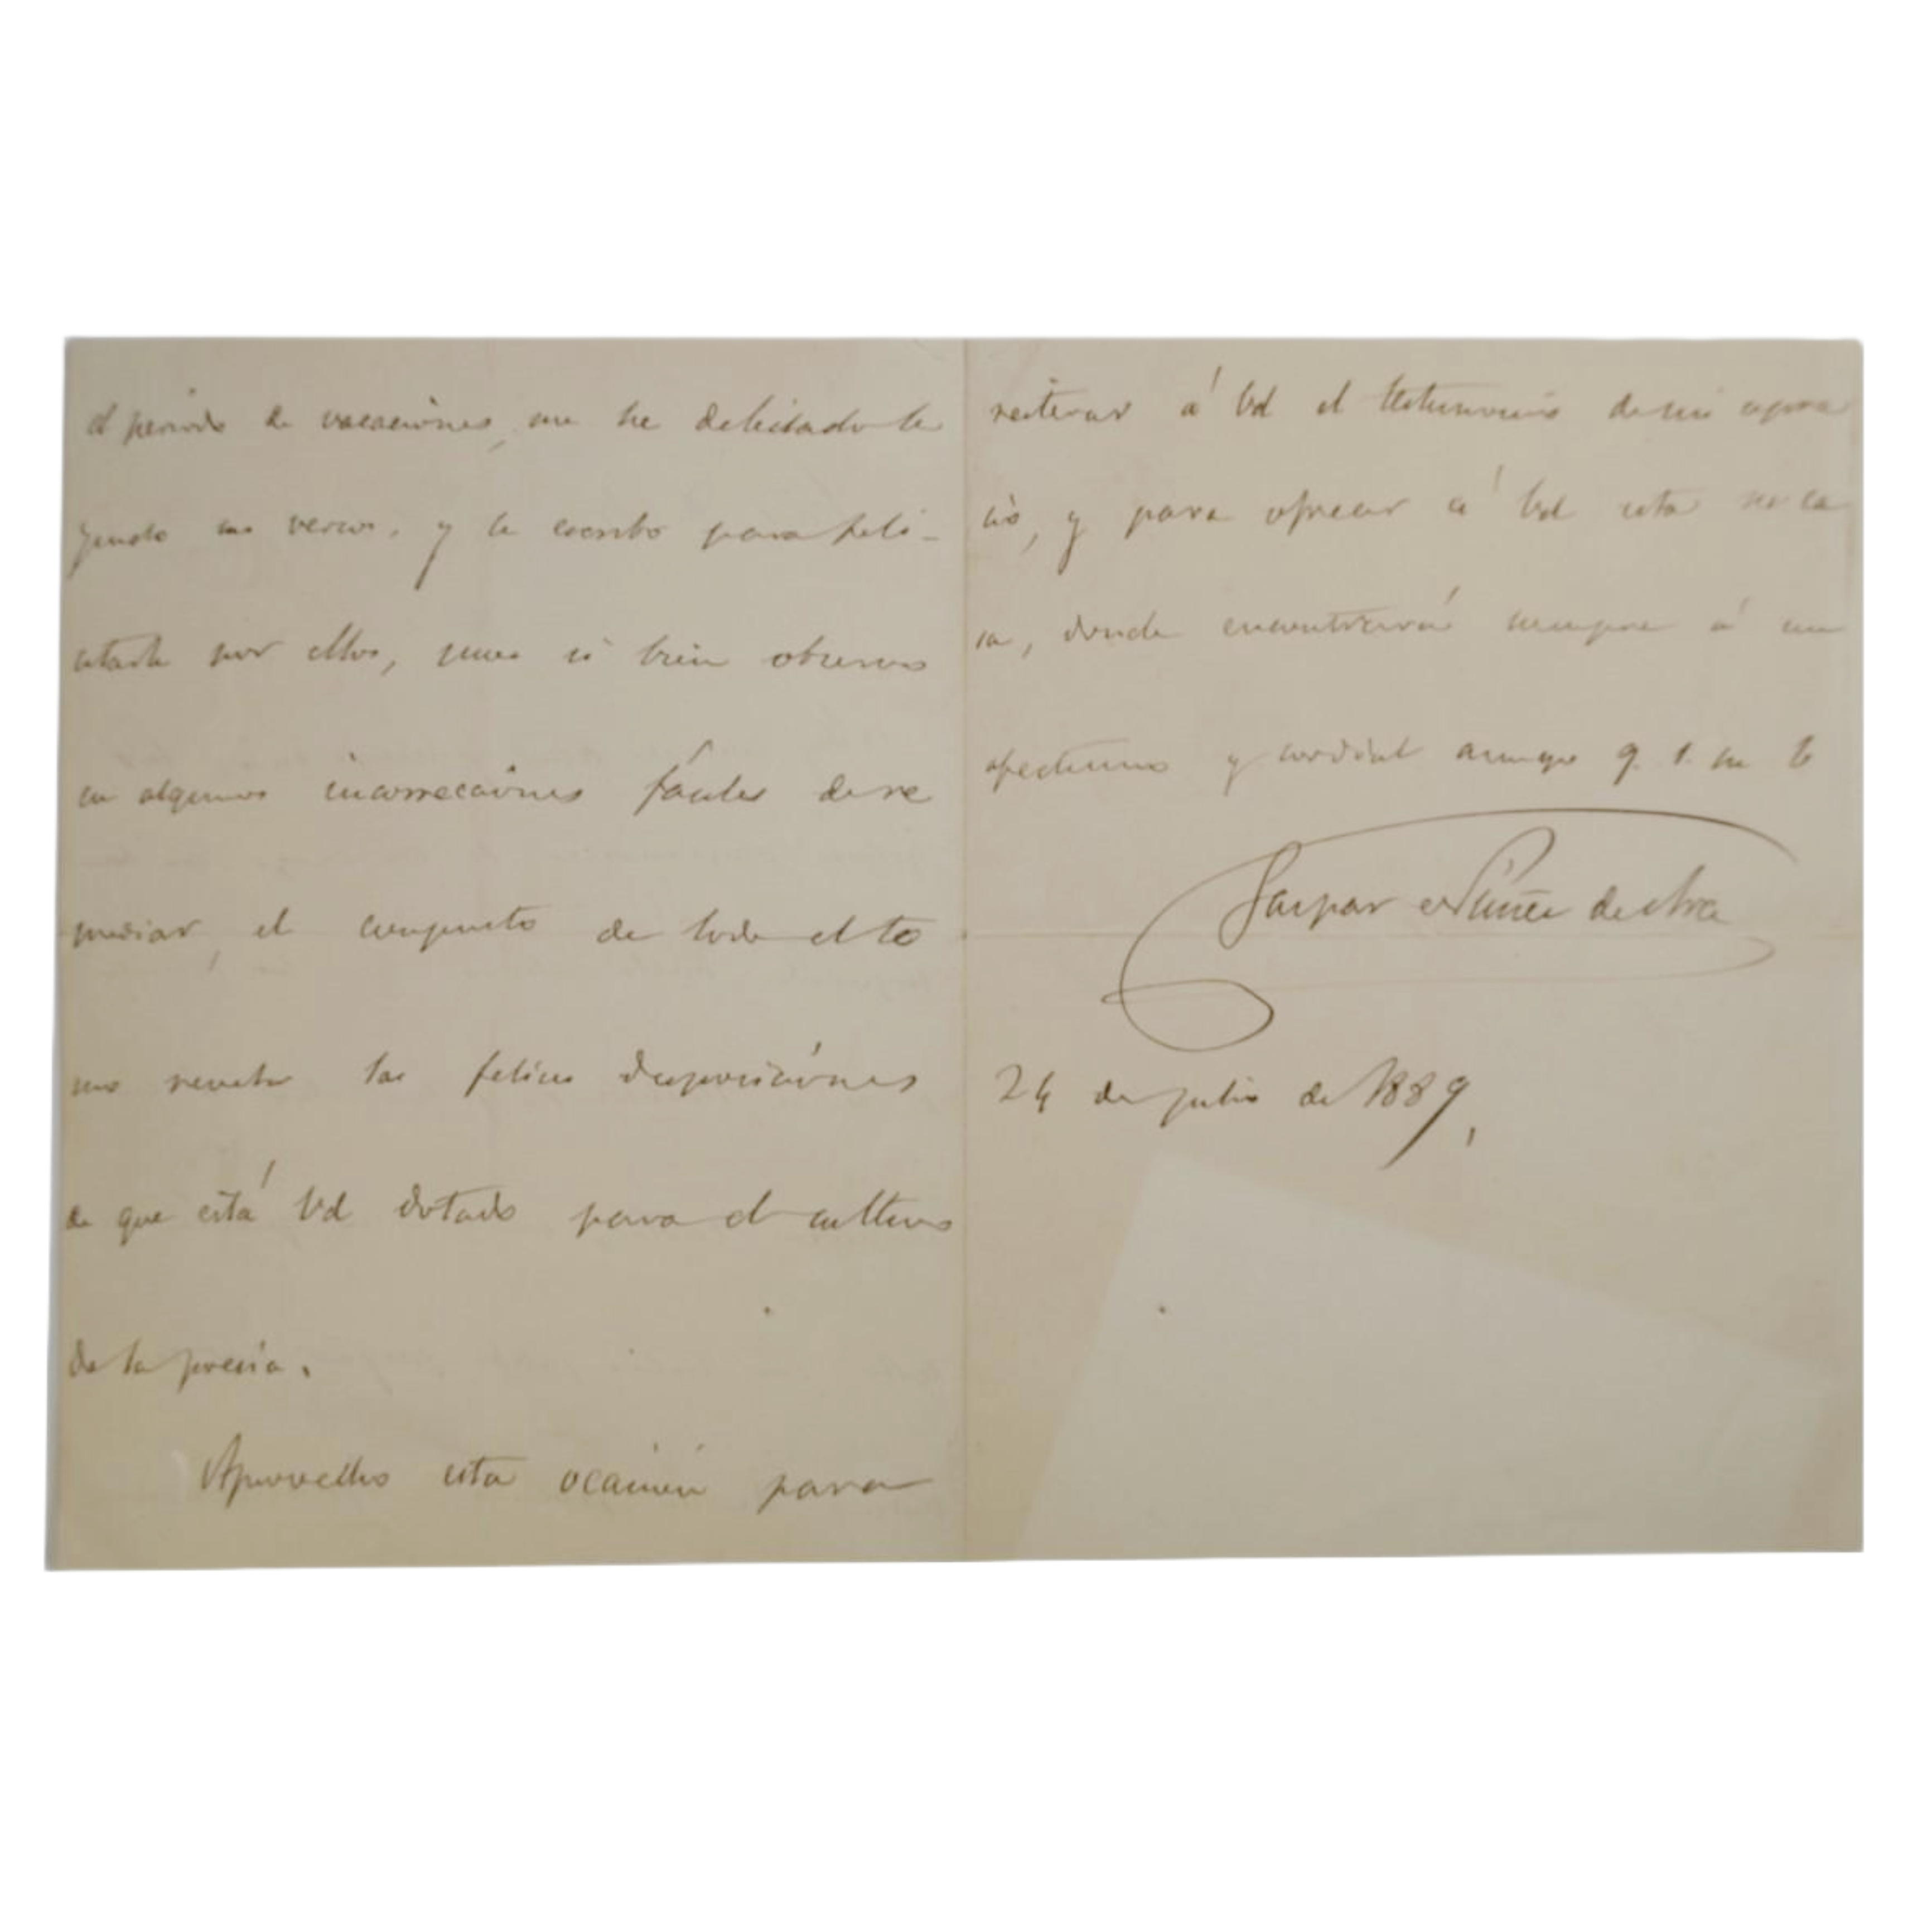 el periodo de vacaciones, me he deleitado le
yendo sus versos, y le escribo para feli-
citarle por ellos, pues si bien observo
en algunos incorrecciónes fáciles de re
mediar, el conjunto de todo el to
mo revela las felices disposiciónes
de que está Vd dotado para el cultivo
de la poesía.
Aprovecho esta ocasión para
reiterar á Vd el testimonio de mi apre
cio, y para ofrecer á Vd esta su ca
sa, donde encontrará siempre á un
afectísimo y cordial amigo q. b. su
Gaspar Núñez de Arce
24 de julio de 1889,